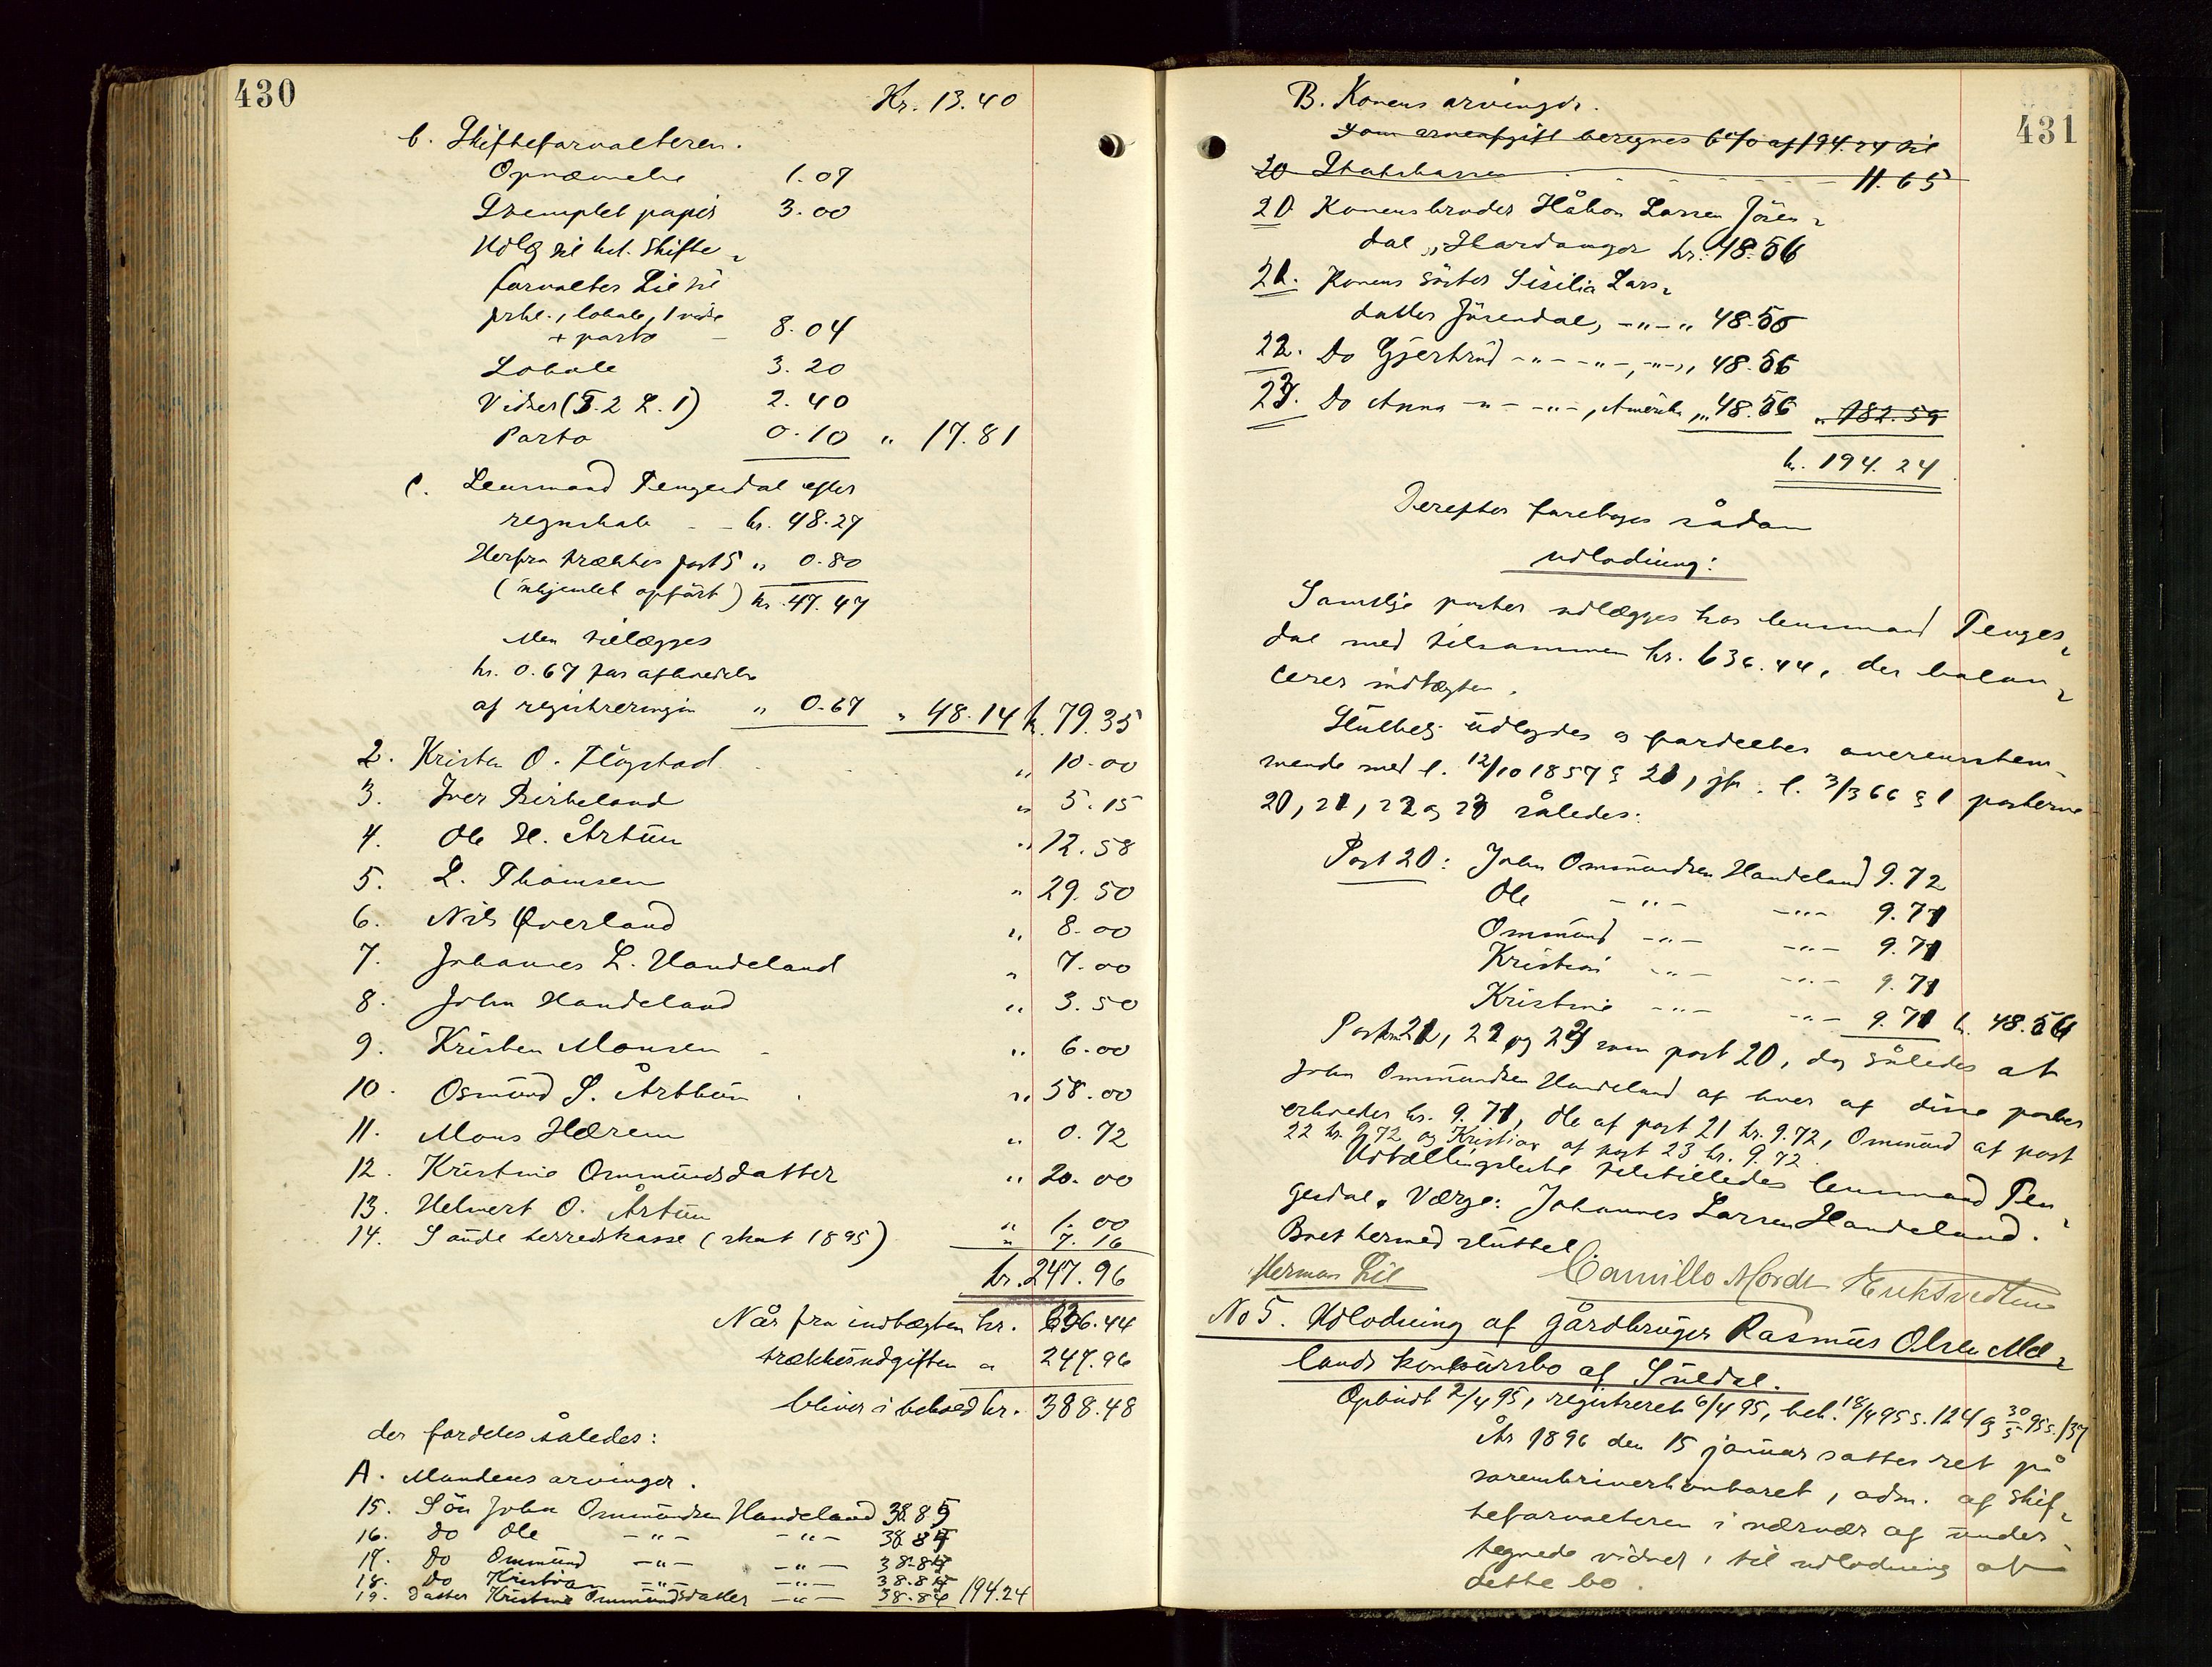 430
Kr. 13.40
b. Skifteforvalteren.
Opnævnelse 1.07
Stemplet papir 3.00
Udlg til kst. skifte-
forvalter Lie til
prkl., lokale, 1 vidne
+ porto – 8.04
Lokale 3.20
Vidner (T. 2 L. 1) 2.40
Porto 0.10 " 17.81
c. Lensmand Tengesdal efter
regnskab – – kr. 48.27
Herfra trækkes post 5 " 0.80
(uhjemlet opført) kr. 47.47
Men tillægges
kr. 0.67 for afhoedelse
af registreringen " 0.67 " 48.14 kr. 79.35
2. Kristen O. Fløgstad " 10.00
3. Iver Birkeland " 5.15
4. Ole H. Årtun " 12.58
5. L. Thomsen " 29.50
6. Nils Øverland " 8.00
7. Johannes L. Handeland " 7.00
8. John Handeland " 3.50
9. Kristen Monsen " 6.00
10. Osmund S. Årthun " 58.00
11. Mons Hærem " 0.72
12. Kristine Ommundsdatter " 20.00
13. Helmert O. Årtun " 1.00
14. Saude herredskasse (skat 1895) " 7.16
kr. 247.96
Når fra indtægten kr. 636.44
trækkes udgiften " 247.96
bliver i behold kr. 388.48
der fordeles således:
A. Mandens arvinger.
15. Søn John Ommundsen Handeland 38.85
16. Do Ole –"– –"– 38.85
17. Do Ommund –"– –"– 38.85
18. Do Kristian –"– –"– 38.85
19. Datter Kristine Ommundsdatter –"– 38.84 194.24
431
B. Konens arvinger.
som arveafgift beregnes 6% af 194.24 til
20 Statskassen – – – – 11.65
20. Konens broder Håkon Larsen Jösen-
dal, Hardanger kr. 48.56
21. Konens söster Sisilia Lars-
datter Jösendal, –"–" 48.56
22. Do Gjertrud –"– –"–, –"–, 48.56
23. Do Anna –"– –"–, Amerika, " 48.56 " 182.59
kr. 194.24
Derefter foretoges sådan
udlodning:
Samtlige poster udlægges hos lensmand Tenges-
dal med tilsammen kr. 636.44, der balan-
cerer indtægten.
Sluttelig udlagdes og fordeltes overensstem-
mende med l. 12/10 1857 § 21, jfr. l. 3/3 66 § 1 posterne
20, 21, 22 og 23 således:
Post 20: John Ommundsen Handeland 9.72
Ole –"– –"– 9.71
Ommund –"– –"– 9.71
Kristian –"– –"– 9.71
Kristine –"– –"– 9.71 kr. 48.56
Posterne 21, 22 og 23 som post 20, dog således at
John Ommundsen Handeland af hver af disse poster
erholder kr. 9.71, Ole af post 21 kr. 9.72, Ommund af post
22 kr. 9.72 og Kristian af post 23 kr. 9.72.
Udtællingsliste tilstilledes lensmand Ten-
gesdal. Værge: Johannes Larsen Handeland.
Boet hermed sluttet.
Herman Lie Camillo Mordt
No 5. Udlodning af gårdbruger Rasmus Olsen Mæ-
lands konkursbo af Suldal.
Opbudt 2/4 95, registreret 6/4 95, beh. 18/4 95 s. 124 og 30/5 95 s. 137
År 1896 den 15 januar sattes ret på
sorenskriverkontoret, adm. af skif-
teforvalteren i nærvær af under-
tegnede vidner, til udlodning af
dette bo.